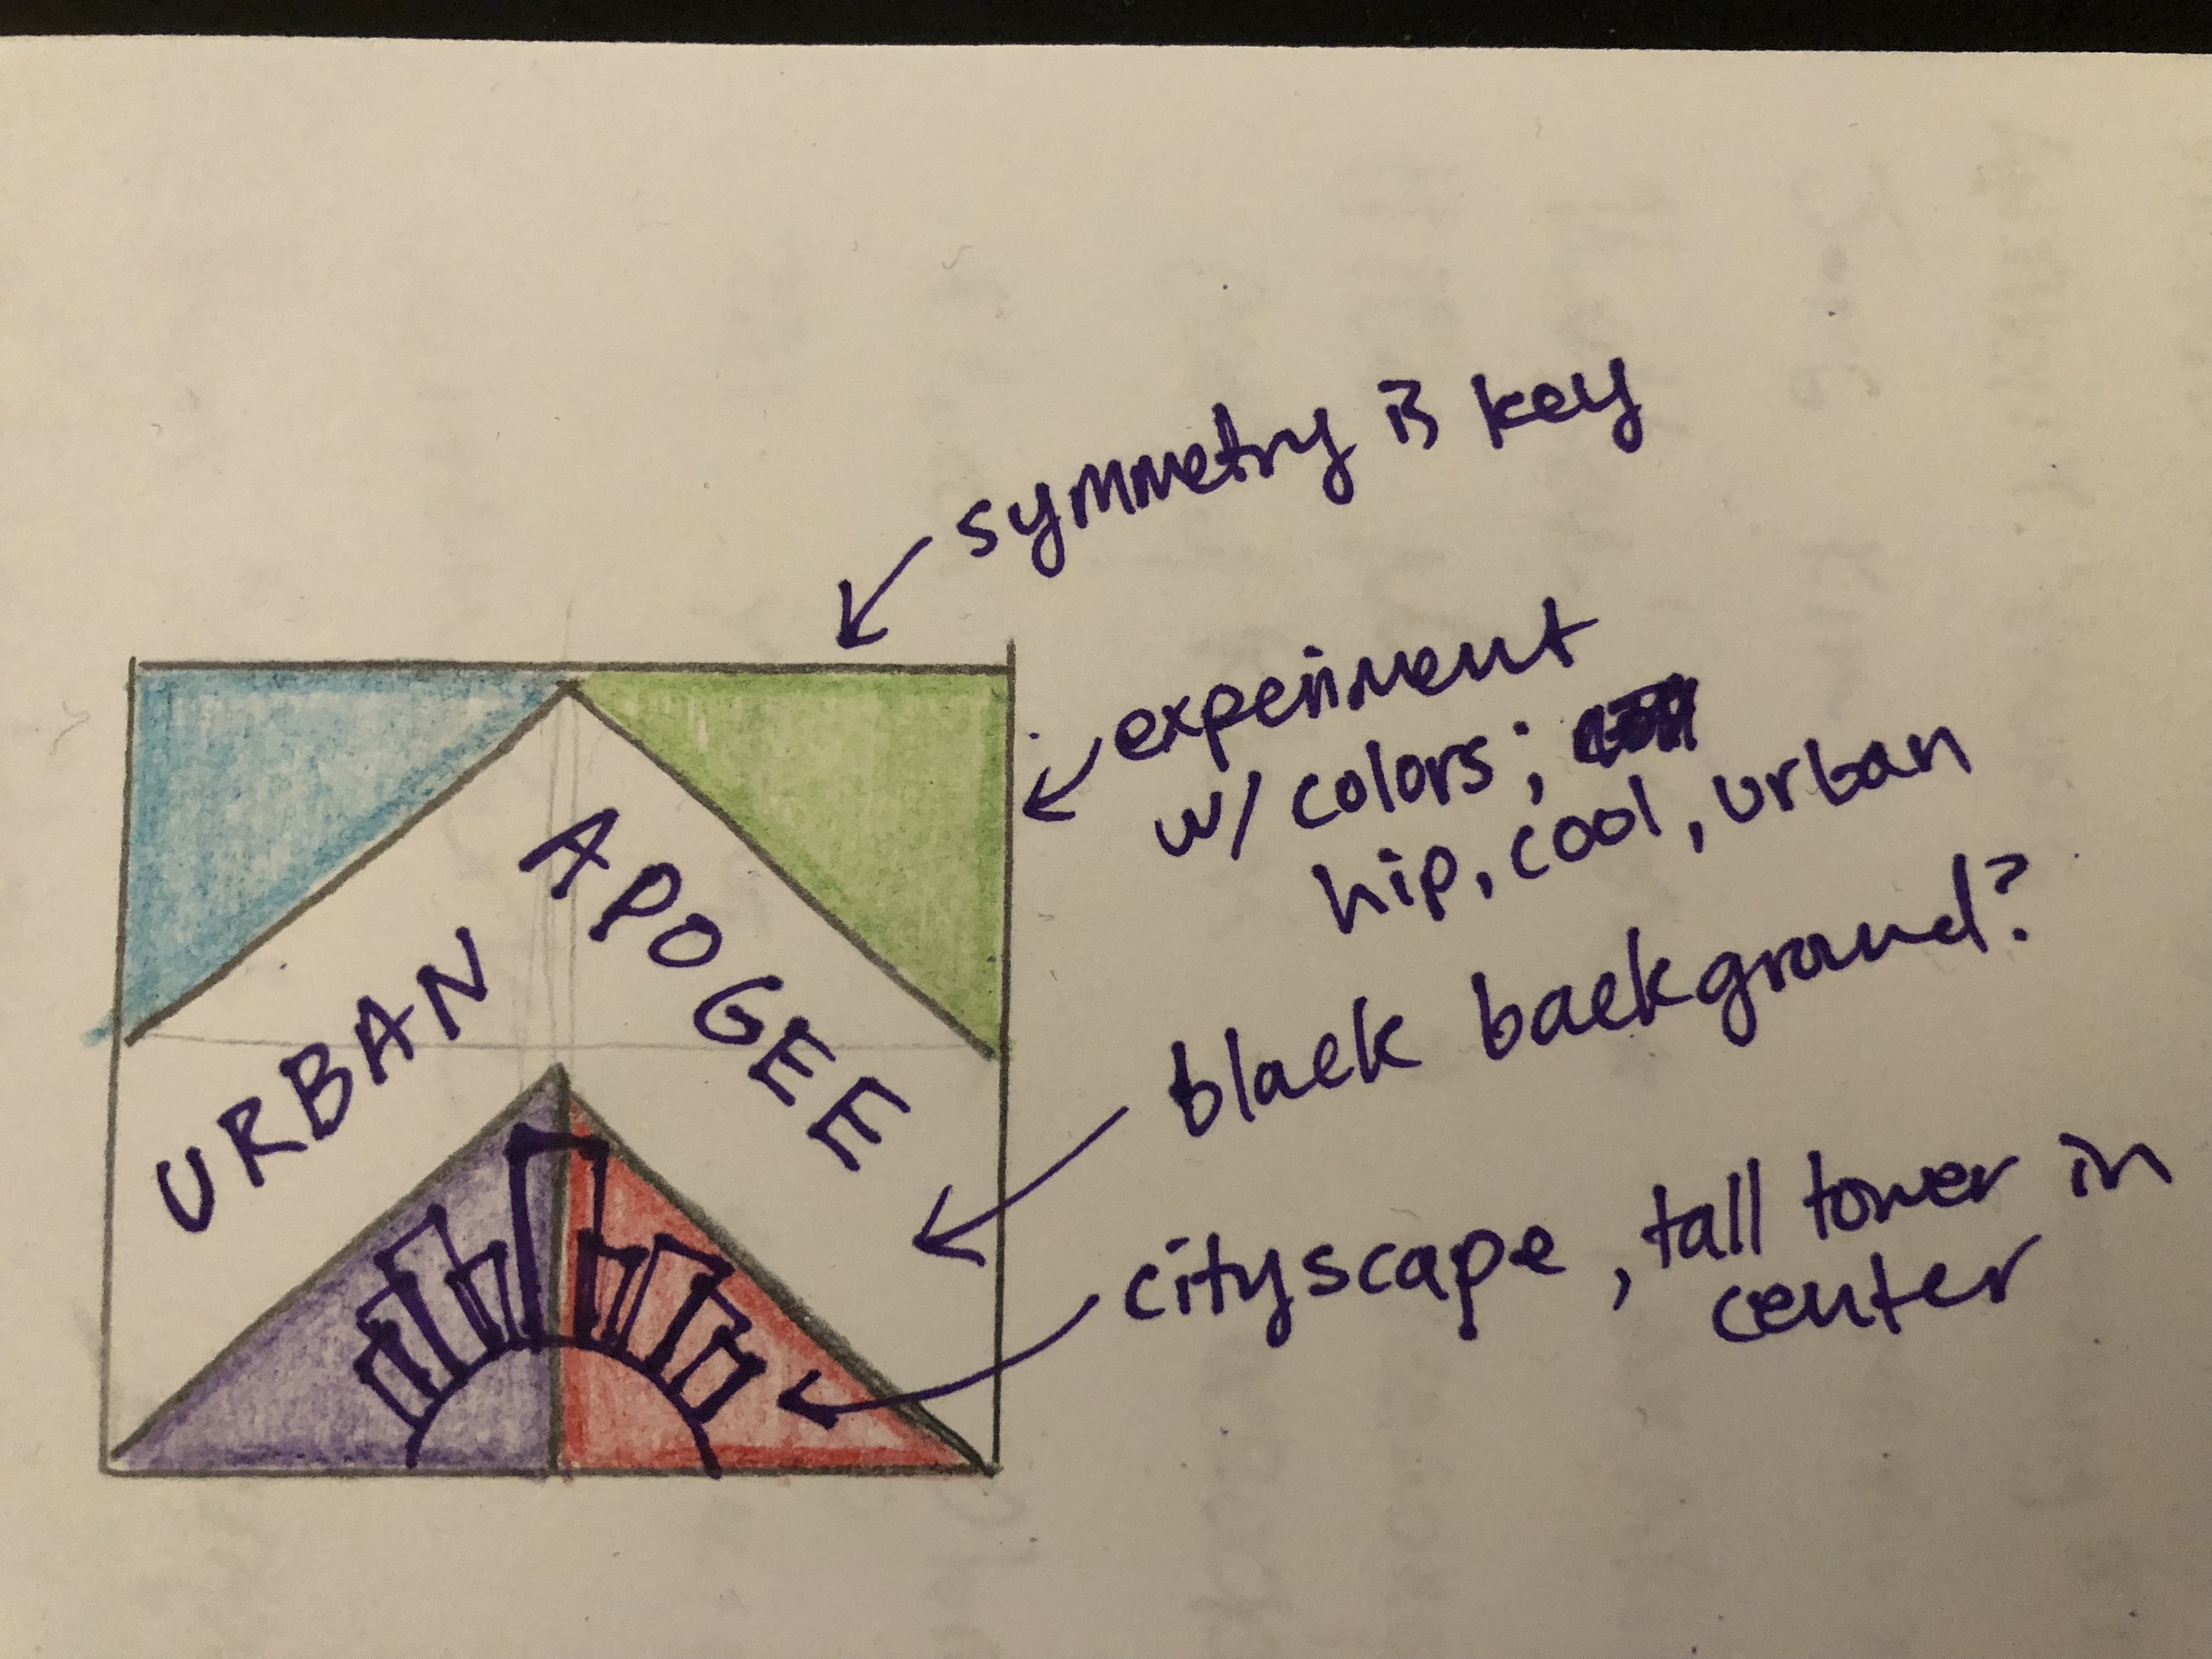 symmetry is key
experiment
w/ colors;
hip, cool, urban
black background?
cityscape, tall tower in
center
URBAN APOGEE